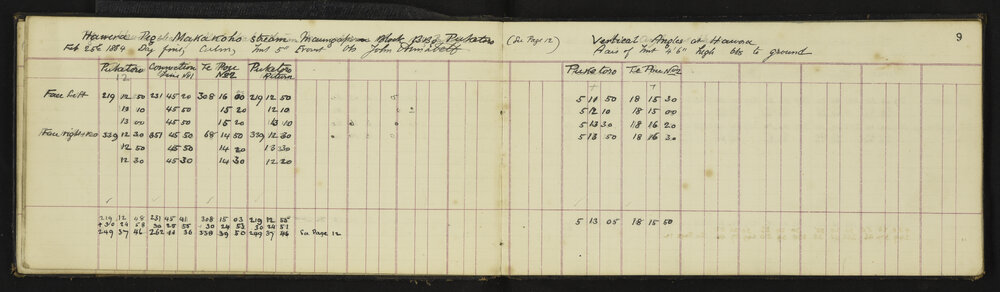 Hawera Peg Makakoho stream Block Puketoro (See Page 12) Vertical Angles at Hawera 9
Feb 25th 1884 Day fine, Calm, Inst 5" Obs John Axis of Inst 4'6" high obs to ground
Puketoro Connection Te Pou Puketoro Puketoro Te Pou No 2
No 2 Return
Face left 219 12 50 231 45 20 308 16 00 219 12 50 5 11 50 18 15 30
13 10 45 50 15 20 12 10 5 12 10 18 15 00
13 00 45 50 15 20 13 10 5 13 30 18 16 20
Face right 339 12 30 351 45 50 68 14 50 339 12 30 5 13 50 18 16 30
12 50 45 50 14 20 13 30
12 30 45 30 14 30 12 20
219 12 48 231 45 41 308 15 03 219 12 55 - 5 13 05 18 15 50
+30 24 58 30 24 55 30 24 53 30 24 51
249 37 46 262 10 36 338 39 50 249 37 46 See Page 12